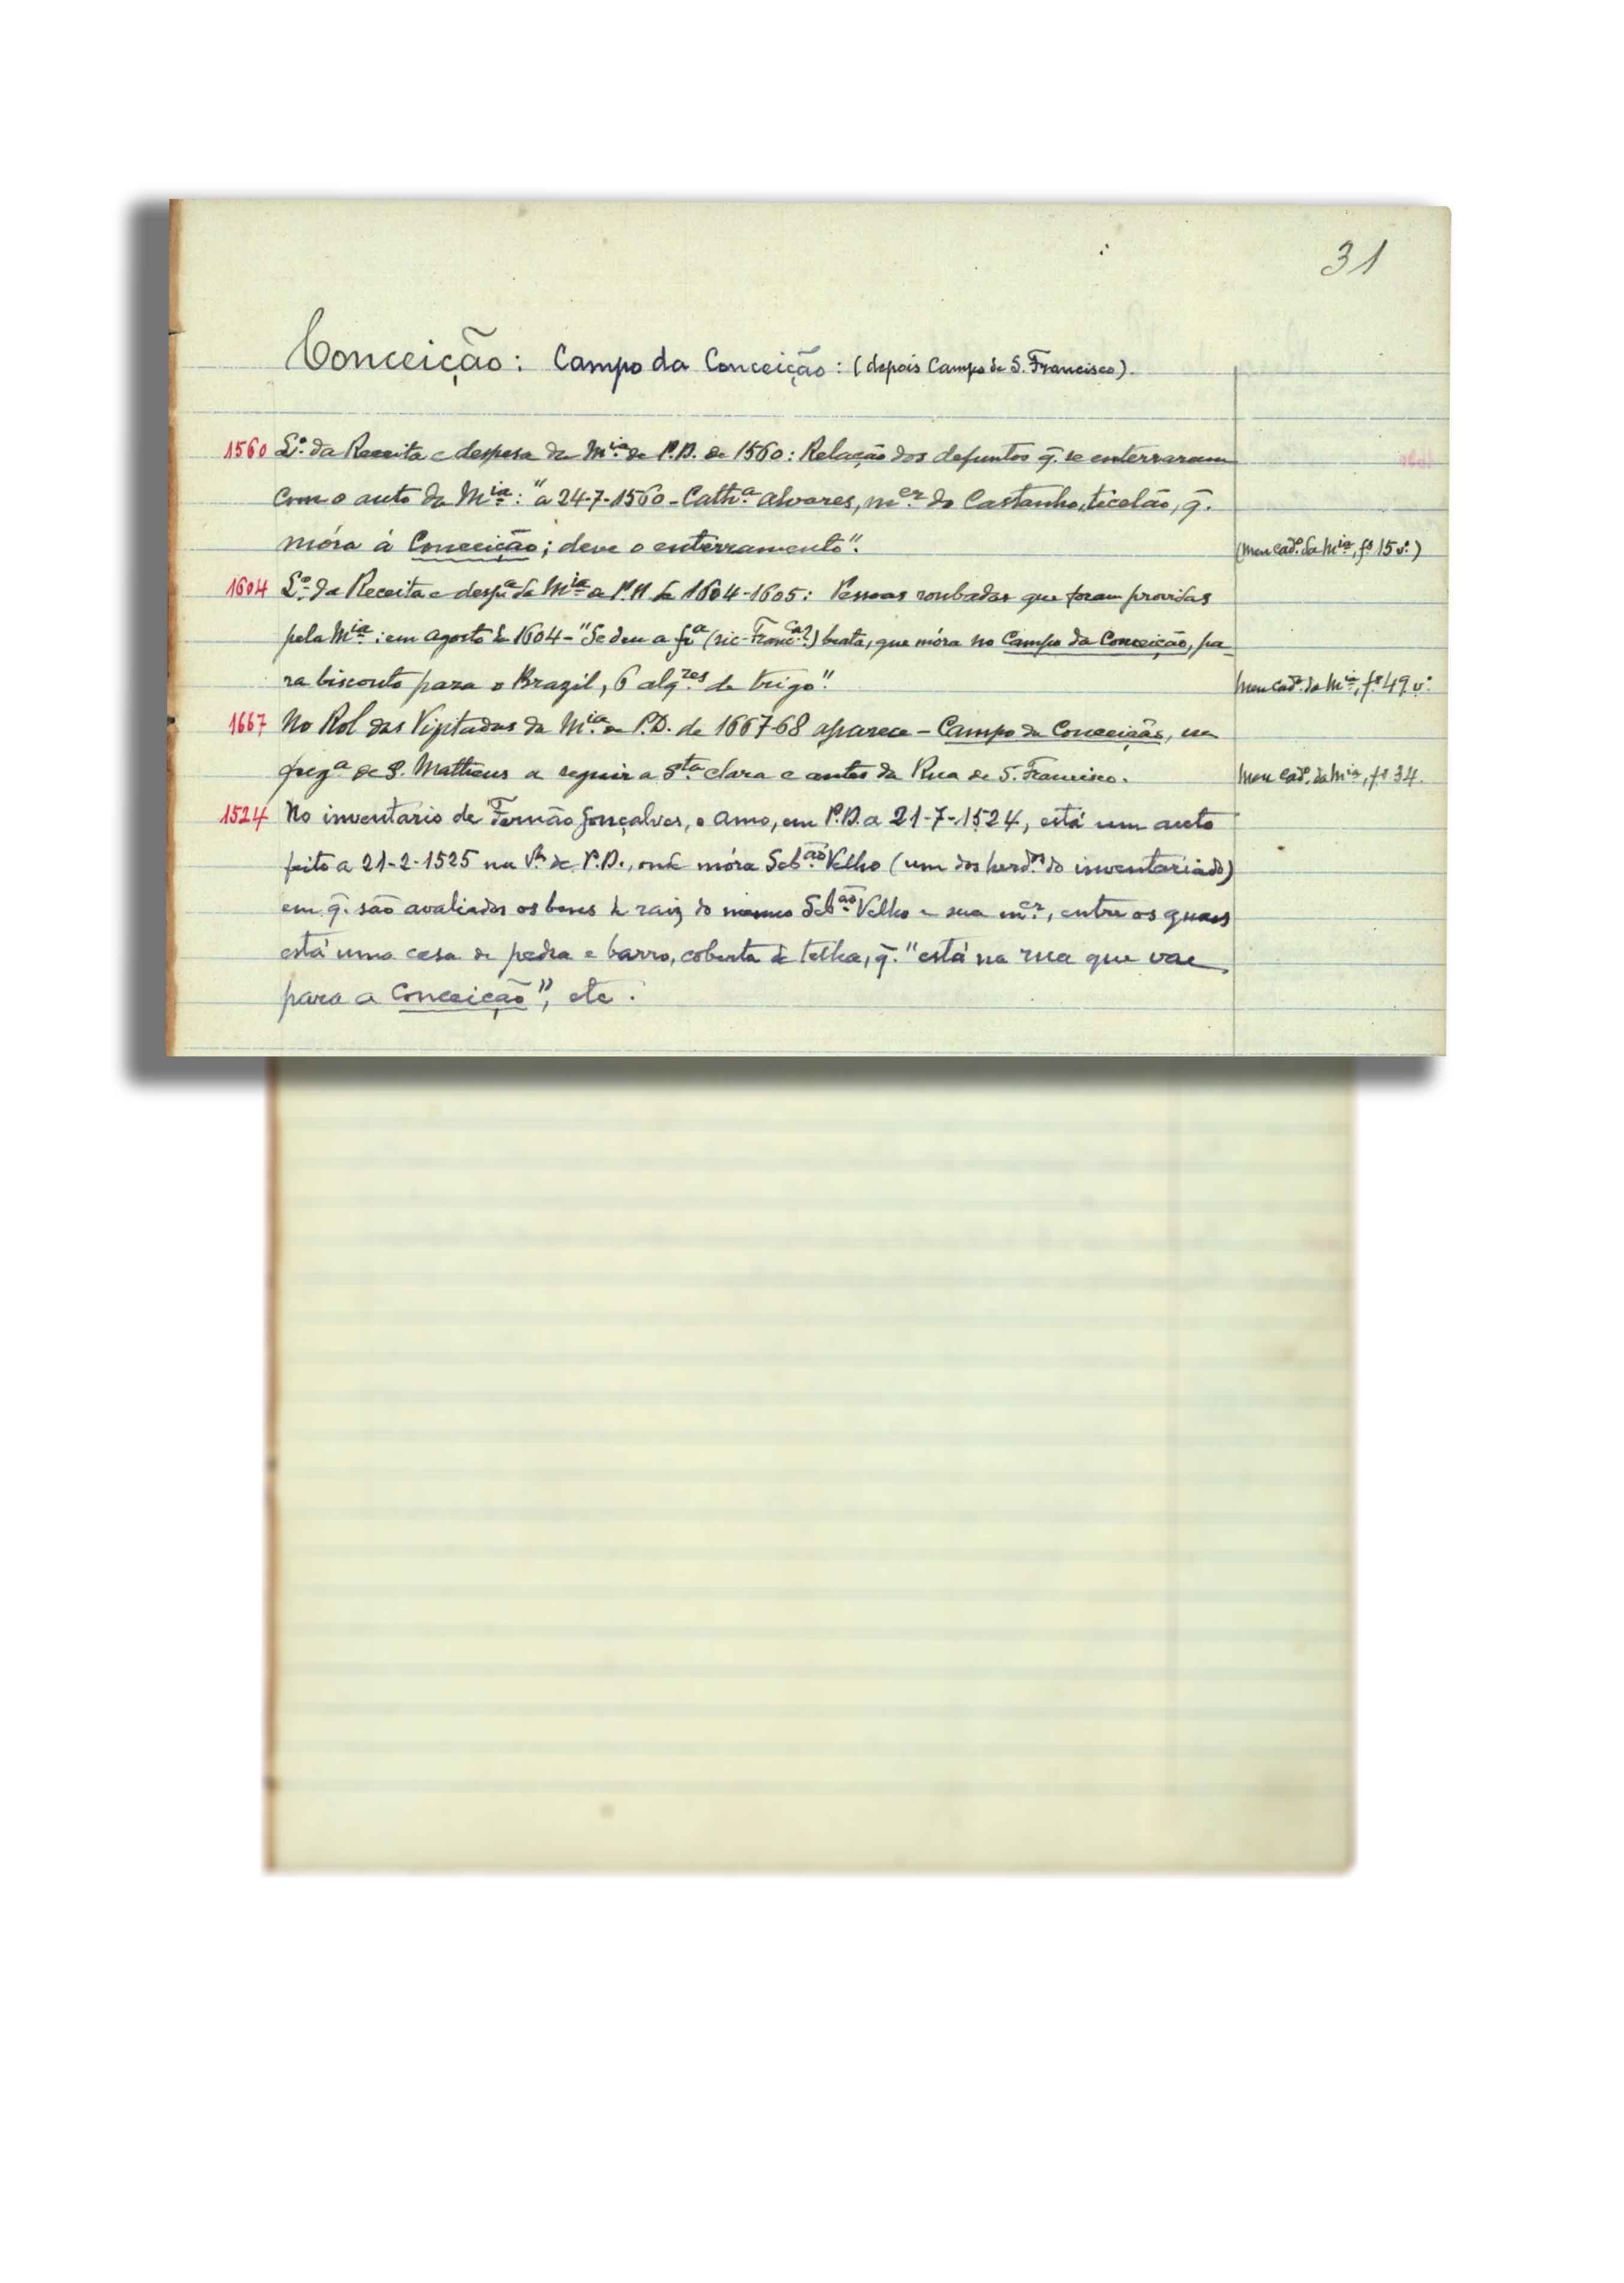 31
Conceição: Campo da Conceição: (depois Campo de S. Francisco).
1560 Lº. da Receita e despesa da Mia. de P.D. de 1560: Relação dos defuntos q̃. se enterraram
com o auto da Mia.: "a 24-7-1560 - Catha. Alvares, mer. do Castanho, tecelão, q̃.
móra á Conceição; deve o enterramento". (Meu cadº. da Mia., fs 15 vº.)
1604 Lº. da Receita e despa. da Mia. de P.D. de 1604-1605: Pessoas roubadas que foram providas
pela Mia.: em agosto de 1604 - "Se deu a fra (sic-Franca.?) beata, que móra no Campo da Conceição, pa-
ra biscouto para o Brazil, 6 alqres de trigo". Meu cadº. da Mia., fs 49 vº.
1667 No Rol das Vizitadas da Mia. de P.D. de 1667-68 aparece - Campo da Conceição, na
frega. de S. Matheus a seguir a Sta. Clara e antes da Rua de S. Francisco. Meu cadº. da Mia., fs 34.
1524 No inventário de Fernão Gonçalves, o Amo, em P.D. a 21-7-1524, está um auto
feito a 21-2-1525 na Va. de P.D., onde móra Sebão. Velho (um dos herdos. do inventariado)
em q̃. são avaliados os bens de raiz do mesmo Sebão. Velho e sua mer., entre os quaes
está uma casa de pedra e barro, coberta de telha, q̃. "está na rua que vae
para a Conceição", etc.